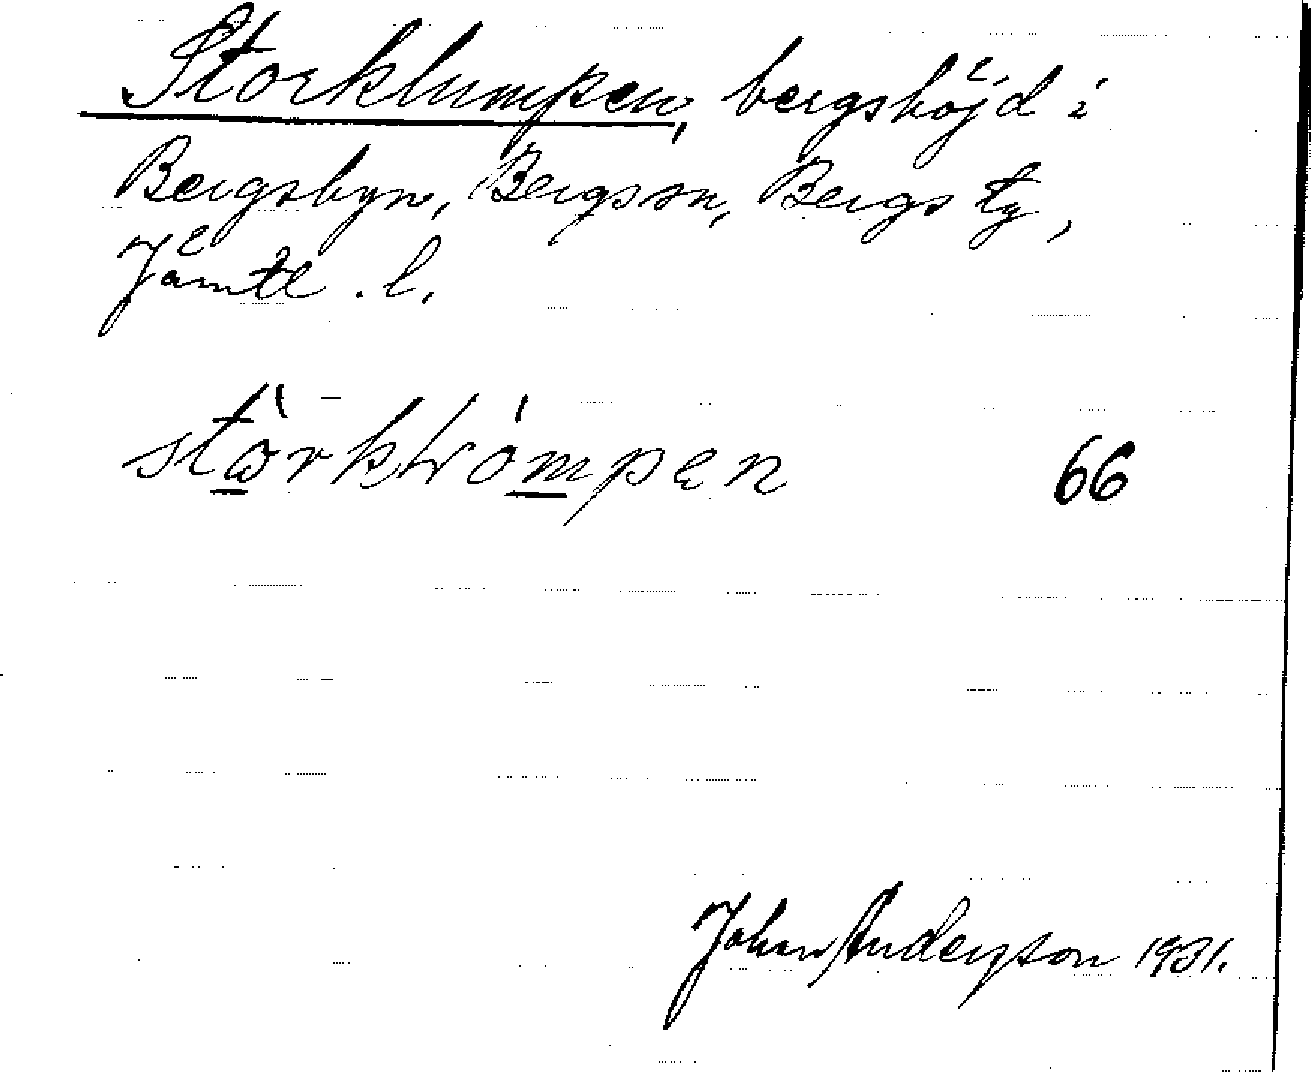 Storklumpen, bergshöjd i
Bergsbyn, Bergs sn, Bergs tg,
Jämtl. l.
66
John Anderson 1931.